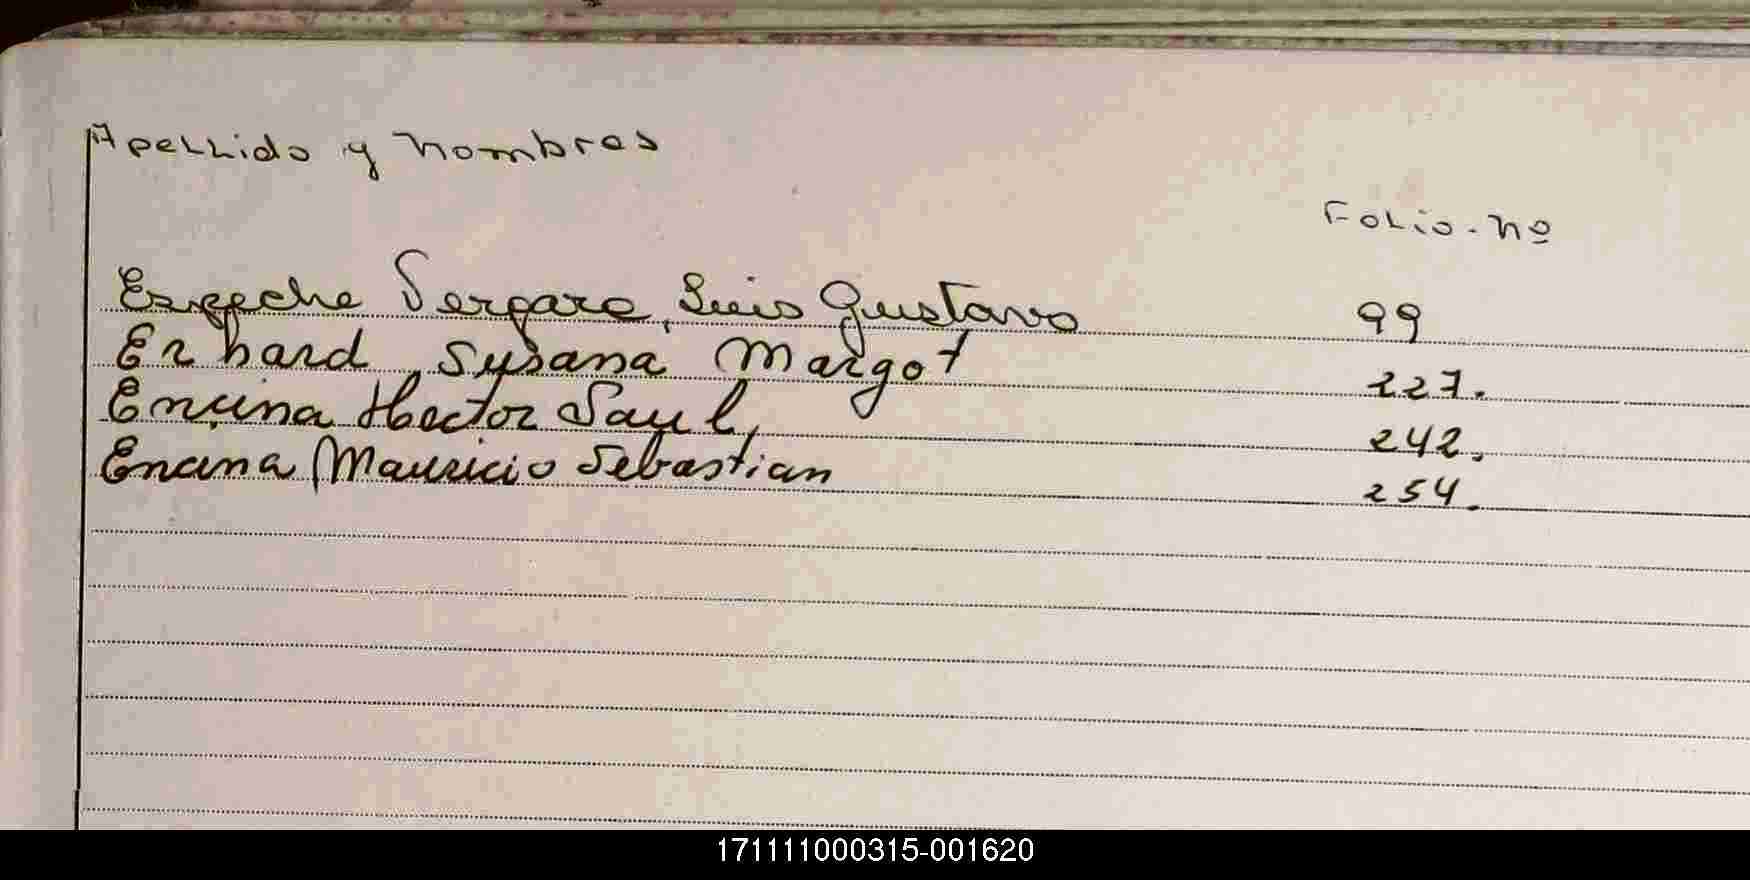 Apellido y Nombres
Folio. Nº
Ezpeche Vergara, Luis Gustavo 99
Erhard, Susana Margot 227.
Encina Hector Saul, 242.
Encina Mauricio Sebastian 254.
171111000315-001620